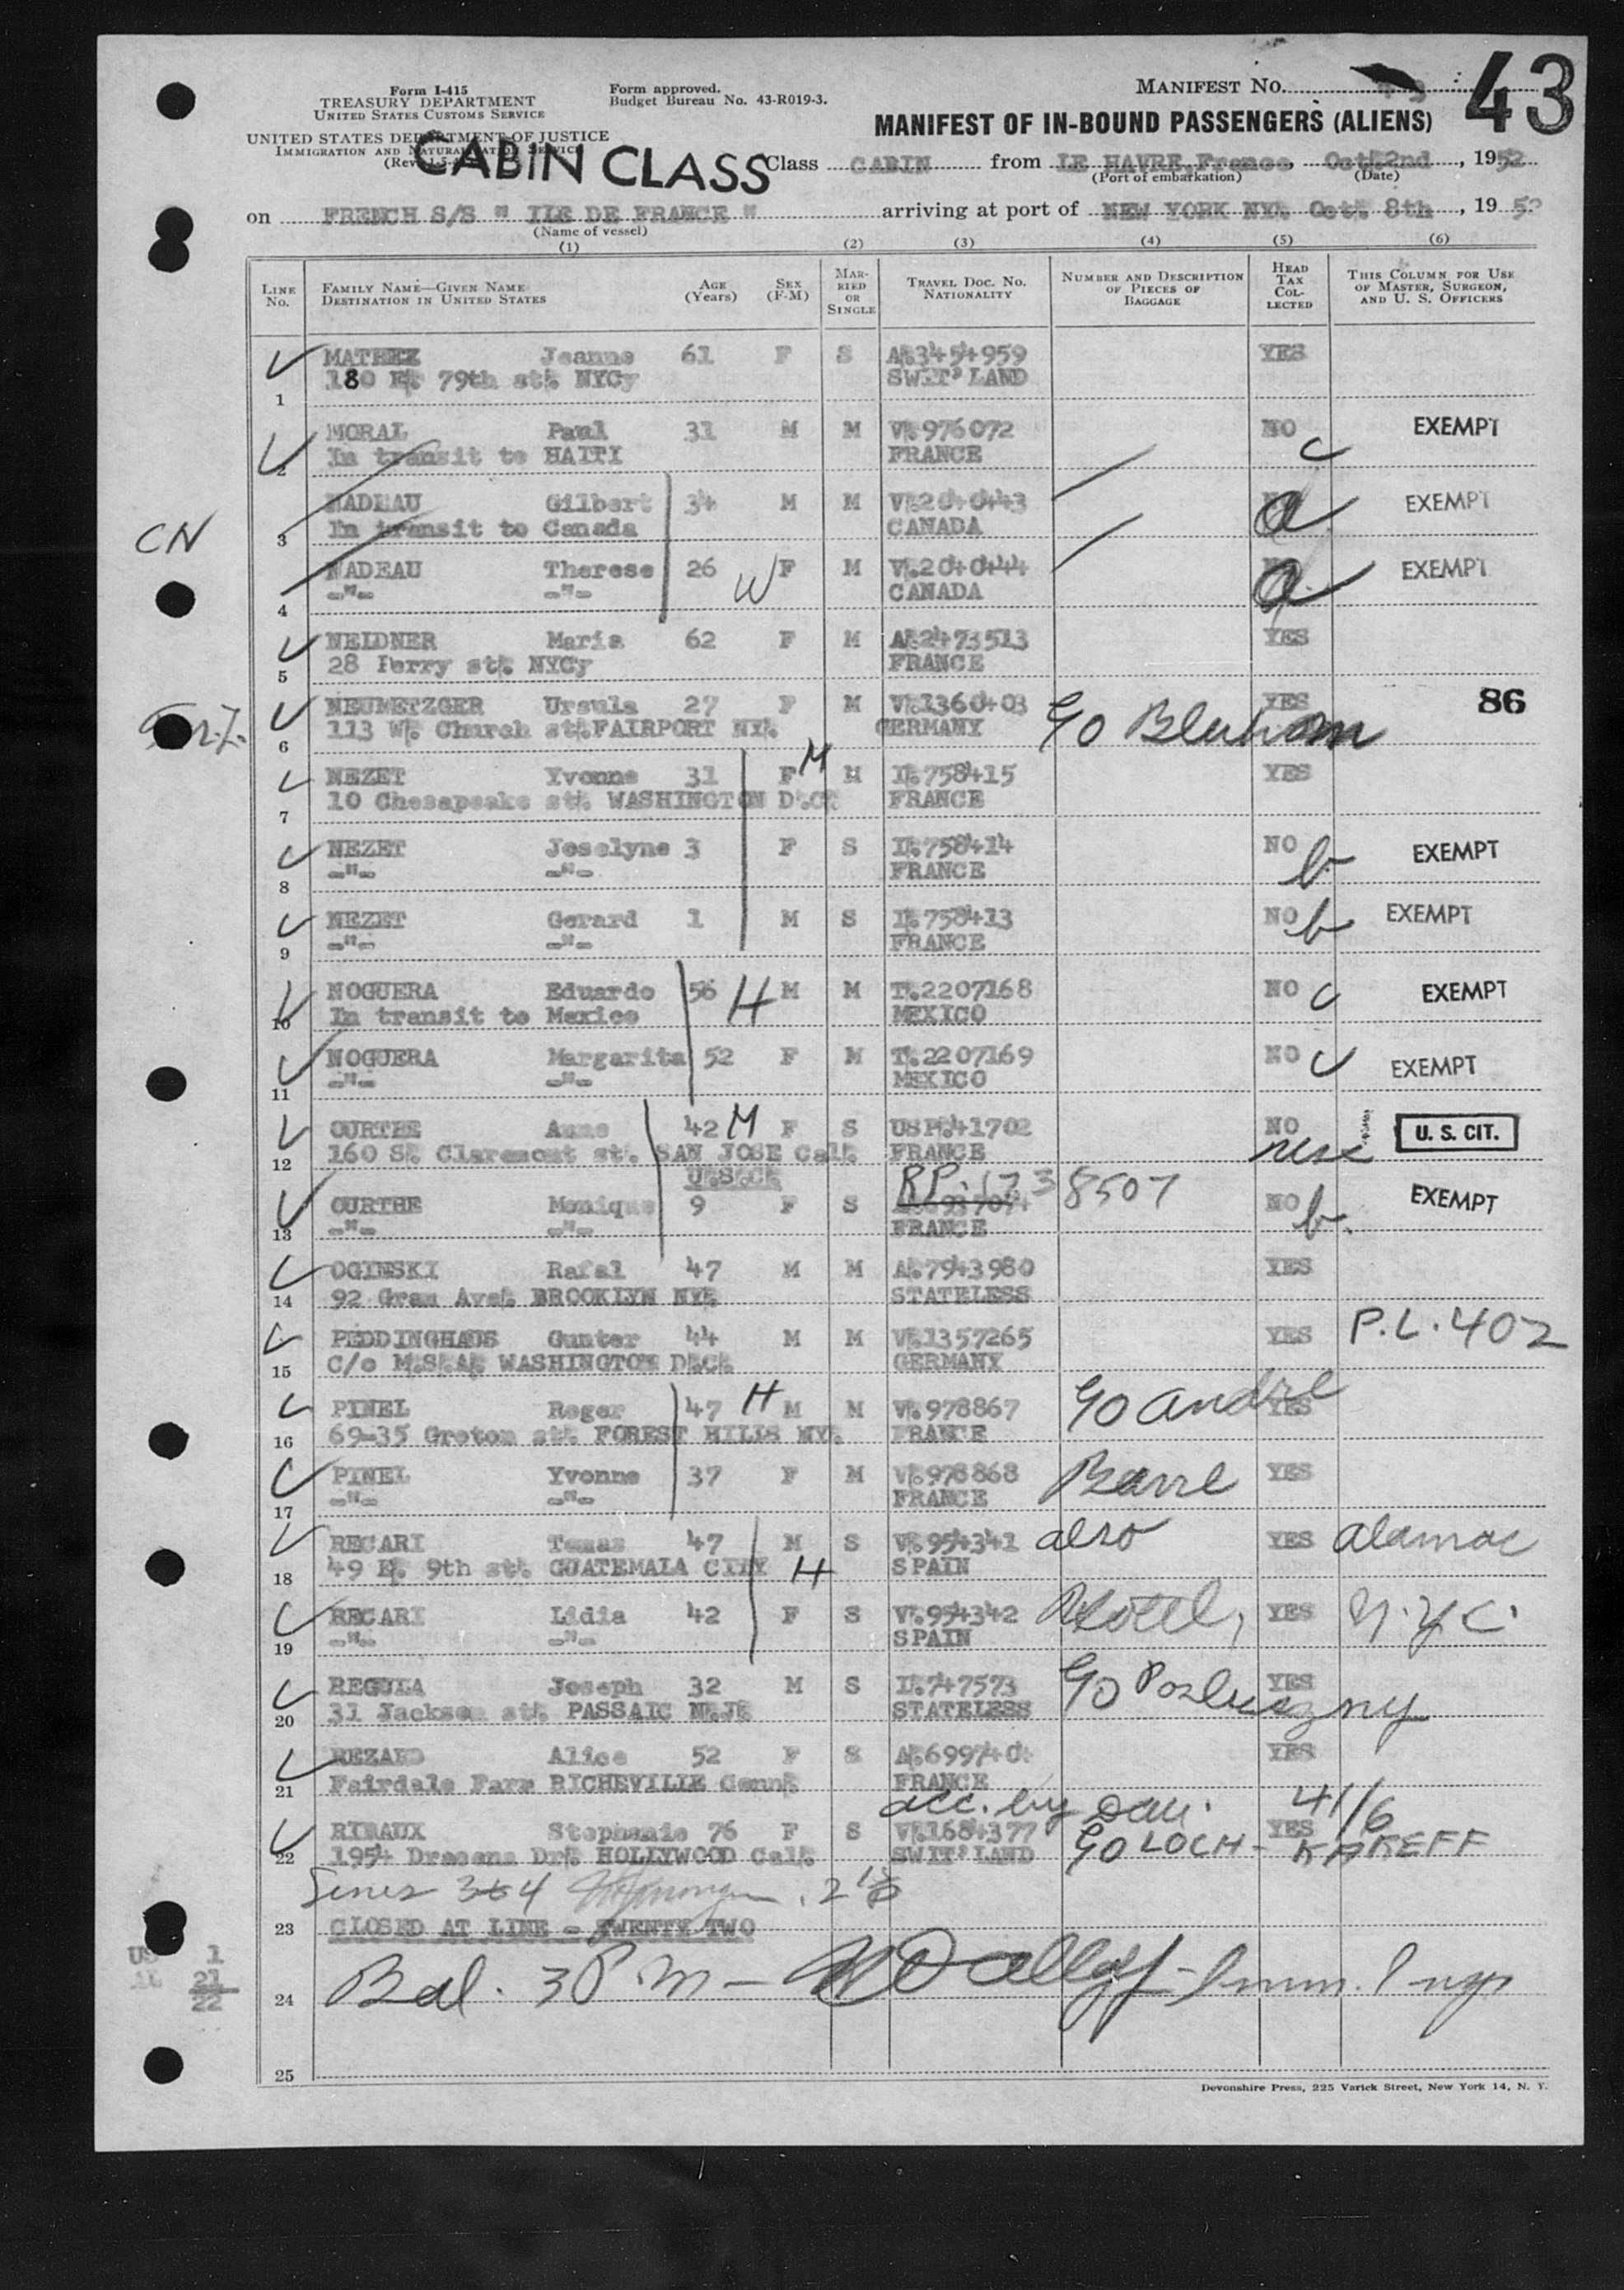 Form I-415
TREASURY DEPARTMENT
UNITED STATES CUSTOMS SERVICE
UNITED STATES DEPARTMENT OF JUSTICE
IMMIGRATION AND NATURALIZATION SERVICE
Form approved.
Budget Bureau No. 43-R019-3.
MANIFEST NO.
43
MANIFEST OF IN-BOUND PASSENGERS (ALIENS)
CABIN CLASS
Class CABIN from LE HAVRE, France, Oct. 2nd, 1952
(Port of embarkation) (Date)
on FRENCH S/S " ILE DE FRANCE " arriving at port of NEW YORK NY. Oct. 8th, 1952
(Name of vessel)
(1) (2) (3) (4) (5) (6)
LINE No. FAMILY NAME—GIVEN NAME DESTINATION IN UNITED STATES AGE (Years) SEX (F-M) MARRIED OR SINGLE TRAVEL DOC. NO. NATIONALITY NUMBER AND DESCRIPTION OF PIECES OF BAGGAGE HEAD TAX COLLECTED THIS COLUMN FOR USE OF MASTER, SURGEON, AND U. S. OFFICERS
MATHEZ Jeanne 61 F S A.3454959 YES
1 180 E. 79th st. NYCy SWIT'LAND
MORAL Paul 31 M M V.976072 NO c EXEMPT
2 In transit to HAITI FRANCE
NADEAU Gilbert 34 M M V.2040443 a EXEMPT
CN 3 In transit to Canada CANADA
NADEAU Therese 26 W F M V.2040444 a EXEMPT
4 -"- -"- CANADA
NEIDNER Maria 62 F M A.2473513 YES
5 28 Perry st. NYCy FRANCE
NEUMETZGER Ursula 27 F M V.1360403 YES 86
6 113 W. Church st. FAIRPORT NY. GERMANY
NEZET Yvonne 31 F M M I.758415 YES
7 10 Chesapeake st. WASHINGTON D.C. FRANCE
NEZET Joselyne 3 F S I.758414 NO b EXEMPT
8 -"- -"- FRANCE
NEZET Gerard 1 M S I.758413 NO b EXEMPT
9 -"- -"- FRANCE
NOGUERA Eduardo 56 H M M T.2207168 NO c EXEMPT
10 In transit to Mexico MEXICO
NOGUERA Margarita 52 F M T.2207169 NO c EXEMPT
11 -"- -"- MEXICO
OURTHE 42 M F S USP.41702 NO U. S. CIT.
12 160 S. Claremont st. SAN JOSE Cal. FRANCE
U.S.C.
OURTHE Monique 9 F S RP. 1738507 NO b. EXEMPT
13 -"- -"- FRANCE
OGINSKI Rafal 47 M M A.7943980 YES
14 92 Gram Ave. BROOKLYN NY. STATELESS
PEDDINGHAUS Gunter 44 M M V.1357265 YES P.L. 402
15 C/o M.S.A. WASHINGTON D.C. GERMANY
PINEL Roger 47 H M M V.978867 c/o Andre YES
16 69-35 Groton st. FOREST HILLS NY. FRANCE
PINEL Yvonne 37 F M V.978868 Barre YES
17 -"- -"- FRANCE
RECARI Tomas 47 M S V.954341 also YES Alamac
18 49 E. 9th st. GUATEMALA CITY H SPAIN
RECARI Lidia 42 F S V.954342 Hotel, YES N.Y.C.
19 -"- -"- SPAIN
REGULA Joseph 32 M S I.747573 c/o Posluszny YES
20 31 Jackson st. PASSAIC N.J. STATELESS
Alice 52 F S A.699740 YES
21 Fairdale Farm RICHEVILLE Conn. FRANCE
acc. by 41/6
Stephanie 76 F S V.1684377 YES
22 1954 Dracena Dr. HOLLYWOOD Cal. SWIT'LAND c/o LOCH- KAKEFF
23 CLOSED AT LINE - TWENTY TWO
24 Bal. 3 P.M - Imm. Insp
US 1
21
22
25
Devonshire Press, 225 Varick Street, New York 14, N. Y.